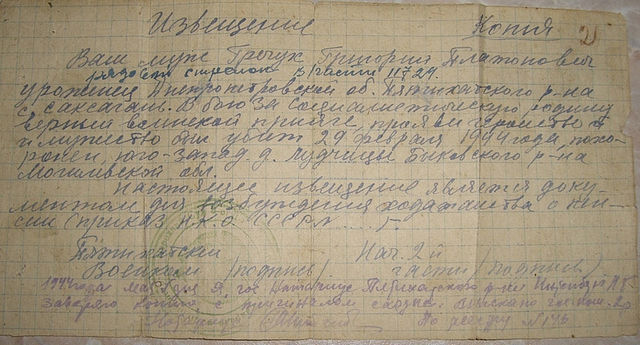 Извещение Копия 2
Ваш муж Грочух Григорий Платонович
рядовой стрелок в/части 11724.
уроженец Днепропетровской об. Пятихатского р-на
с. Саксагань. В бою за социалистическую родину
верный воинской присяге, проявив геройство
и мужество был убит 29 февраля 1944 года, похо-
ронен, юго-запад. д. Быховского р-на
Могилевской обл.
Настоящее извещение является доку-
ментом для возбуждения ходатайства о пен-
сии (приказ НКО СССР № .... г.
Пятихатский Нач. 2й
Военком (подпись). части (подпись)
1944 года мая дня я, гос нотариус Пятихатского р-на
заверяю копию с оригиналом
По реестру № 146